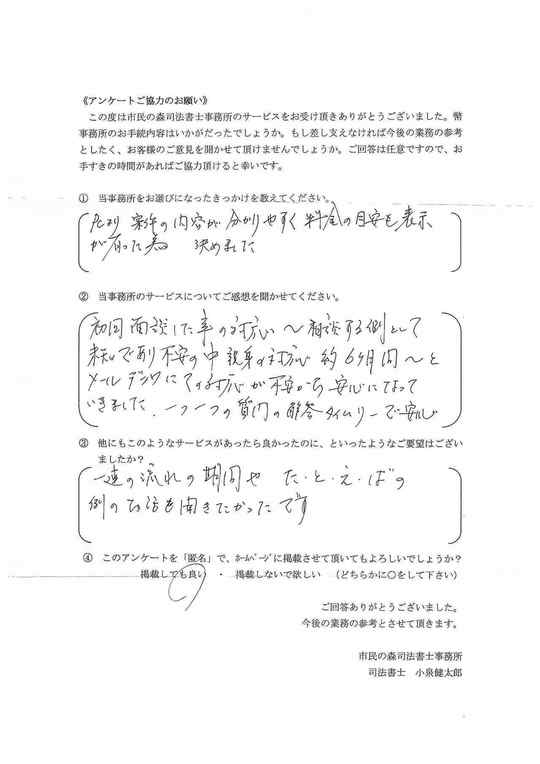 《アンケートご協力のお願い》
この度は市民の森司法書士事務所のサービスをお受け頂きありがとうございました。幣
事務所のお手続内容はいかがだったでしょうか。もし差し支えなければ今後の業務の参考
としたく、お客様のご意見を開かせて頂けませんでしょうか。ご回答は任意ですので、お
手すきの時間があればご協力頂けると幸いです。
① 当事務所をお選びになったきっかけを教えてください。
案件の内容が分かりやすく料金の目安を表示
が有った為 決めました
② 当事務所のサービスについてご感想を聞かせてください。
初回面談した事の対応〜相談する側として
未知であり不安の中親身な対応 約6ヶ月間〜と
メールデンワにての対応が不安から安心になって
いきました. 一つ一つの質問の解答タイムリーで安心
③ 他にもこのようなサービスがあったら良かったのに、といったようなご要望はござい
ましたか?
一連の流れの期間や た・と・え・ばの
例のお話を聞きたかったです
④ このアンケートを「匿名」で、ﾎｰﾑﾍﾟｰｼﾞに掲載させて頂いてもよろしいでしょうか?
掲載しても良い ・ 掲載しないで欲しい (どちらかに○をして下さい)
ご回答ありがとうございました。
今後の業務の参考とさせて頂きます。
市民の森司法書士事務所
司法書士 小泉健太郎